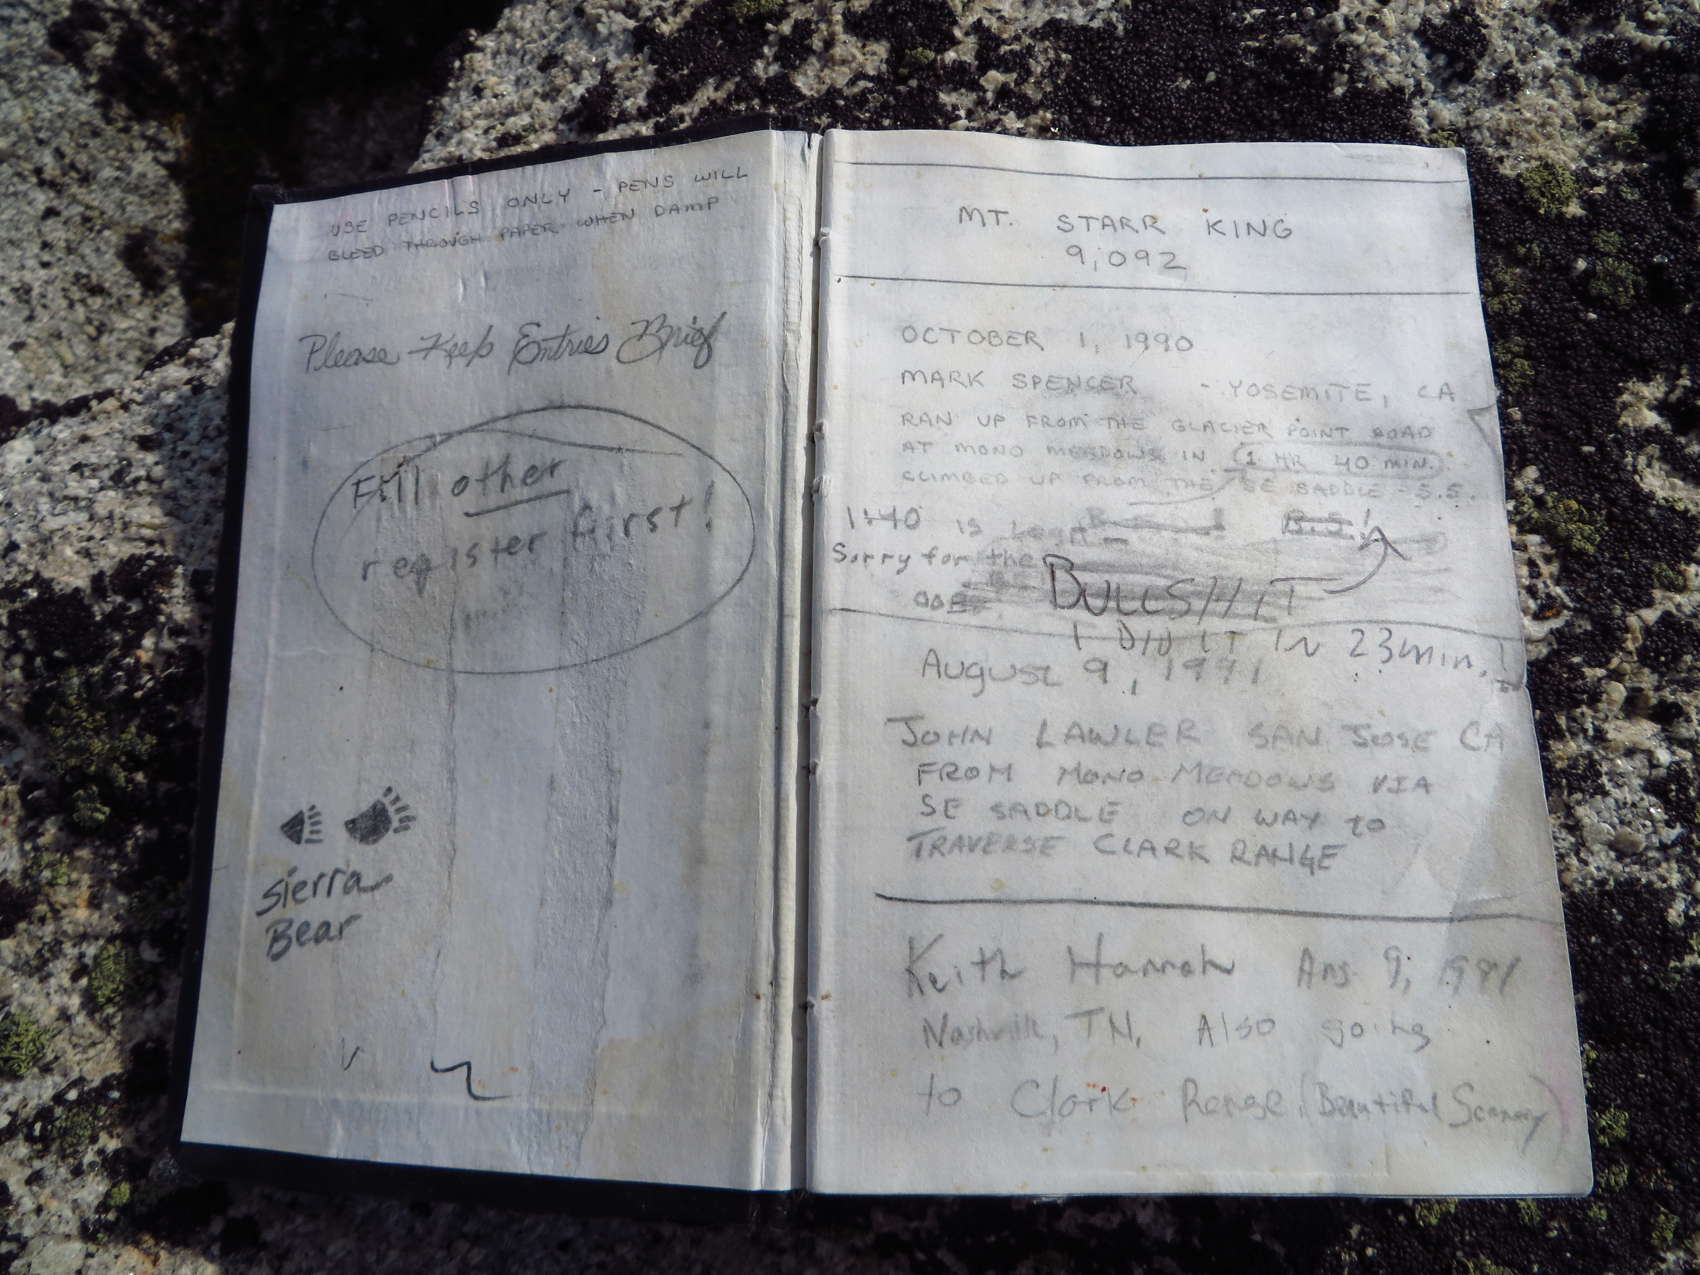 USE PENCILS ONLY - PENS WILL
BLEED THROUGH PAPER WHEN DAMP
Please Keep Entries Brief
Fill other
register first!
Sierra
Bear
MT. STARR KING
9,092
OCTOBER 1, 1990
MARK SPENCER - YOSEMITE, CA
RAN UP FROM THE GLACIER POINT ROAD
AT MONO MEADOWS IN 1 HR 40 MIN.
CLIMBED UP FROM THE SE SADDLE - 5.5.
1:40 is B.S!
Sorry for the
BULLSHIT
I DID IT IN 23min.!
AUGUST 9, 1991
JOHN LAWLER SAN JOSE CA
FROM MONO MEADOWS VIA
SE SADDLE ON WAY TO
TRAVERSE CLARK RANGE
Keith Hannah 9, 1991
Nashville, TN. Also going
to Clark Range (Beautiful Scenery)